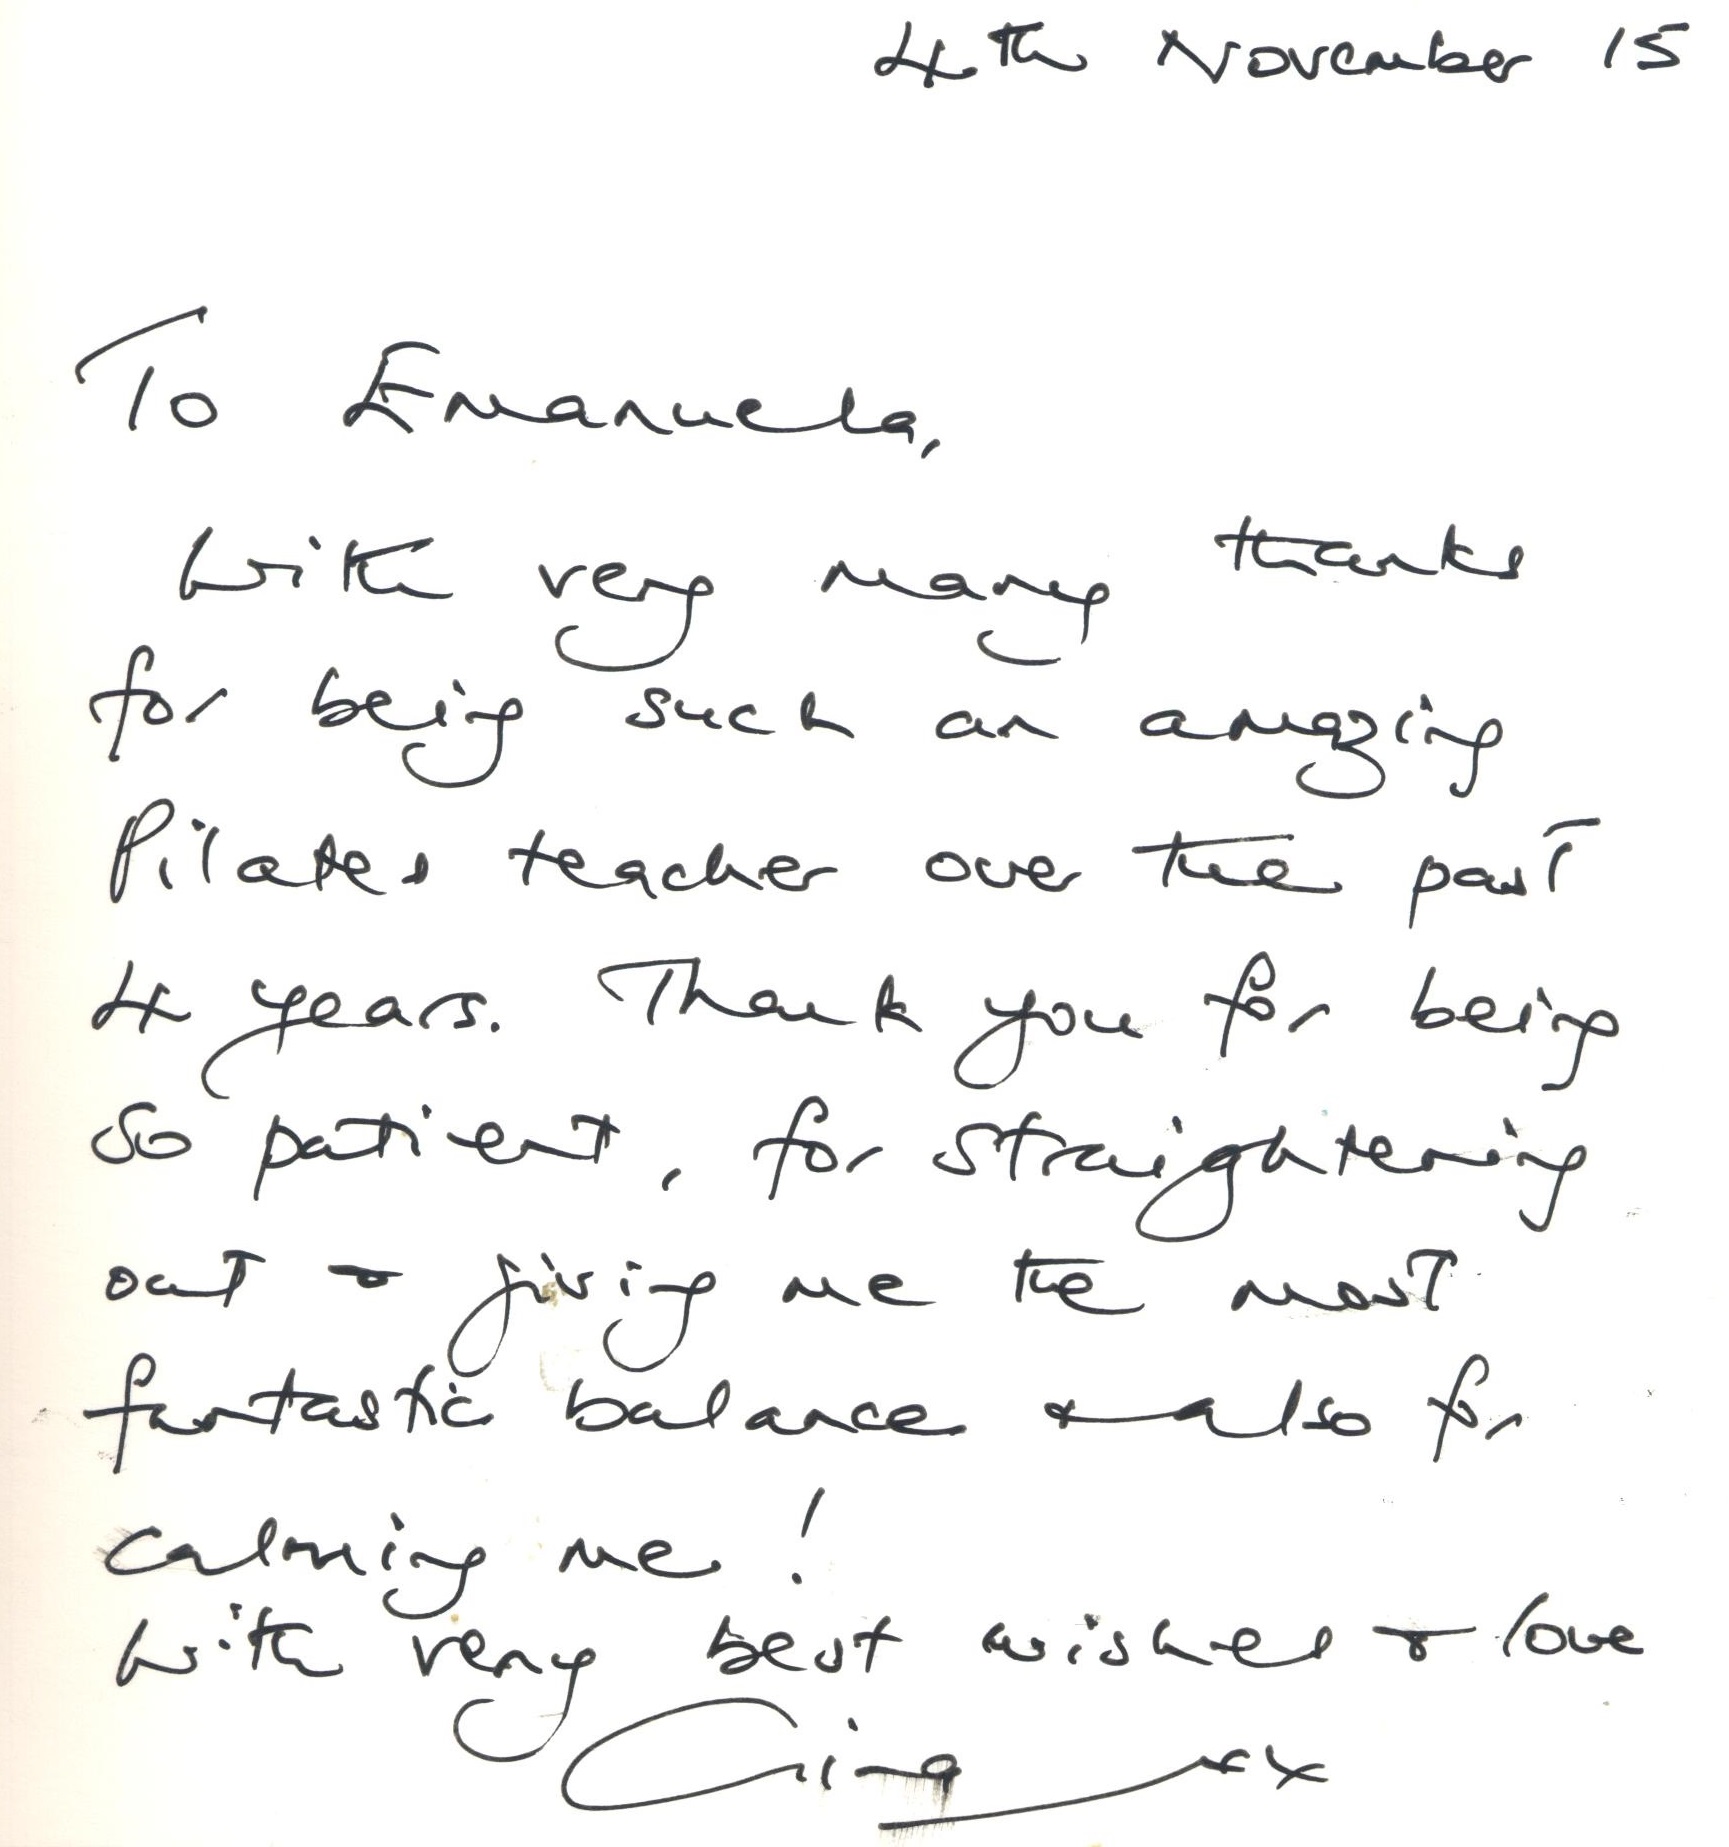 4th November 15
To Emanuela,
With very many thanks
for being such an amazing
Pilates teacher over the past
4 years. Thank you for being
so patient, for straightening
out & giving me the most
fantastic balance & also for
calming me!
With very best wishes & love
xx